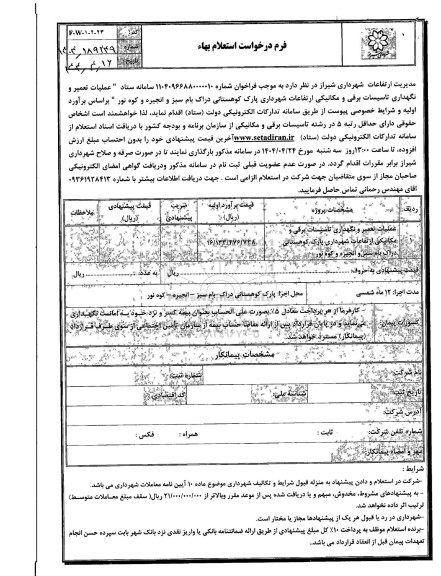 کد: F-W-1-2-23
شماره: ۱۴۰۴/۱۸۹۲۴۹
تاریخ: ۱۴۰۴/۴/۱۲
فرم درخواست استعلام بهاء
مدیریت ارتفاعات شهرداری شیراز در نظر دارد به موجب فراخوان شماره ۱۱۰۴۰۹۶۶۸۸۰۰۰۰۱۰ سامانه ستاد " عملیات تعمیر و
نگهداری تاسیسات برقی و مکانیکی ارتفاعات شهرداری پارک کوهستانی دراک بام سبز و انجیره و کوه نور " براساس برآورد
اولیه و شرایط خصوصی پیوست از طریق سامانه تدارکات الکترونیکی دولت (ستاد) اقدام نماید، لذا خواهشمند است اشخاص
حقوقی دارای حداقل رتبه ۵ در رشته تاسیسات برقی و مکانیکی از سازمان برنامه و بودجه کشور با دریافت اسناد استعلام از
سامانه تدارکات الکترونیکی دولت (ستاد) www.setadiran.ir آخرین قیمت پیشنهادی خود را بدون احتساب مبلغ ارزش
افزوده، تا ساعت ۱۳:۰۰ روز سه شنبه مورخ ۱۴۰۴/۰۴/۲۴ در سامانه مذکور بارگذاری نمایند تا در صورت صرفه و صلاح شهرداری
شیراز برابر مقررات اقدام گردد. در صورت عدم عضویت قبلی ثبت نام در سامانه مذکور ودریافت گواهی امضای الکترونیکی
صاحبان مجاز از سوی متقاضیان جهت شرکت در استعلام الزامی است . جهت دریافت اطلاعات بیشتر با شماره ۰۹۳۶۱۹۲۸۴۱۳
آقای مهندس رحمانی تماس حاصل فرمایید.
ردیف مشخصات پروژه قیمت برآورد اولیه (ریال) ضریب پیشنهادی قیمت پیشنهادی (ریال) ملاحظات
عملیات تعمیر و نگهداری تاسیسات برقی و
مکانیکی ارتفاعات شهرداری پارک کوهستانی
دراک بام سبز و انجیره و کوه نور
قیمت پیشنهادی به حروف: ریال به عدد: ریال
مدت اجرا: ۱۲ ماه شمسی محل اجرا: پارک کوهستانی دراک- بام سبز – انجیره – کوه نور
کسورات پیمان: کارفرما از هر پرداخت معادل ۵٪ بصورت علی الحساب بعنوان بیمه کسر و نزد خود به امانت نگهداری
می‌نماید و در پایان قرارداد پس از ارائه مفاصا حساب بیمه از سازمان تأمین اجتماعی از سوی طرف قرارداد
(پیمانکار) مسترد خواهد شد.
مشخصات پیمانکار
نام شرکت: شماره ثبت:
تاریخ ثبت: شناسه ملی: کد اقتصادی:
آدرس شرکت:
شماره تلفن شرکت: ثابت : همراه : فکس :
مهر و امضاء پیمانکار:
شرایط :
-شرکت در استعلام و دادن پیشنهاد به منزله قبول شرایط و تکالیف شهرداری موضوع ماده ۱۰ آیین نامه معاملات شهرداری می باشد.
- به پیشنهادهای مشروط، مخدوش، مبهم و یا دریافت شده پس از موعد مقرر وبالاتر از ۲۱/۰۰۰/۰۰۰/۰۰۰ ریال( سقف مبلغ معاملات متوسط)
ترتیب اثر داده نخواهد شد.
-شهرداری در رد یا قبول هر یک از پیشنهادها مجاز یا مختار است.
-برنده استعلام موظف به پرداخت ۱۰٪ کل مبلغ پیشنهادی از طریق ارائه ضمانتنامه بانکی یا واریز نقدی نزد بانک شهر بابت سپرده حسن انجام
تعهدات پیمان قبل از انعقاد قرارداد می باشد.